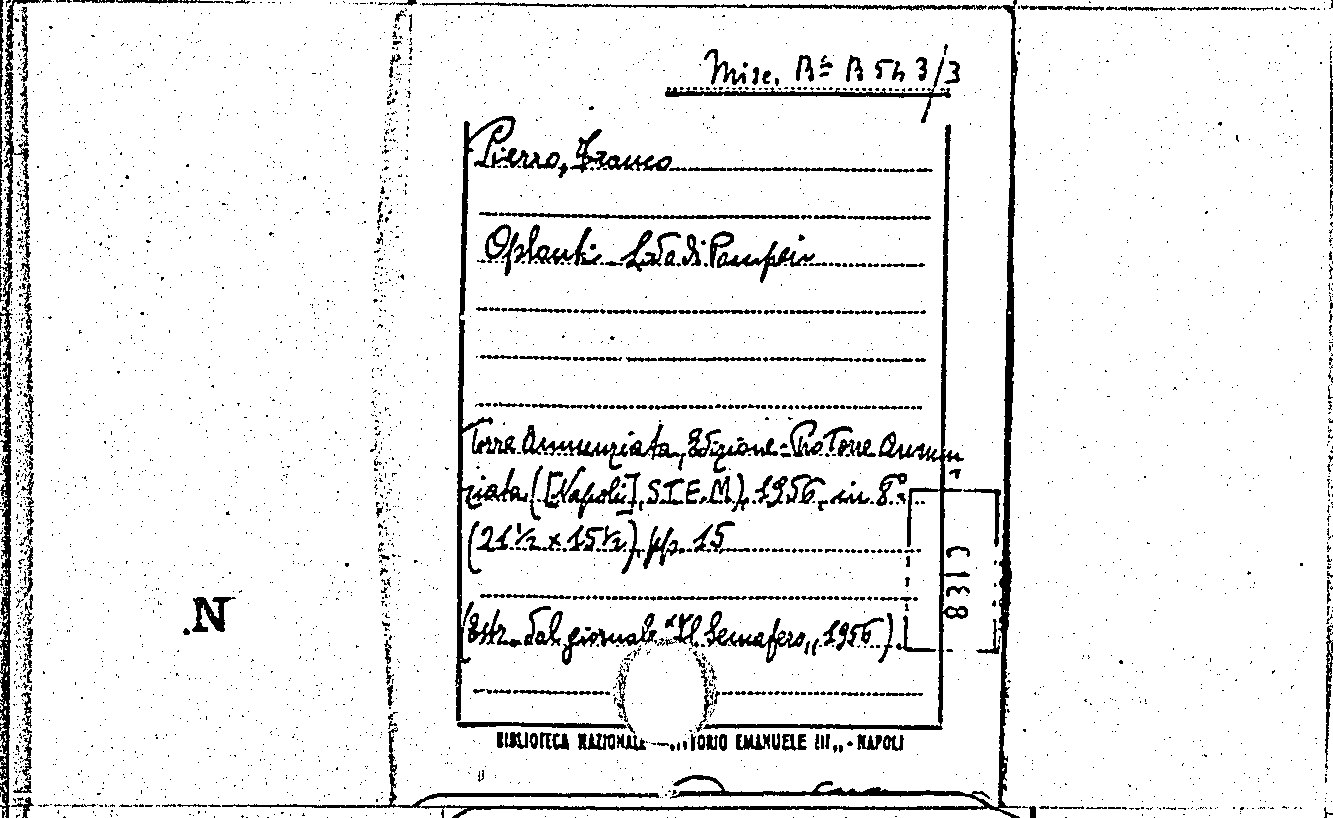 Misc. Bª B 543/3
Pierro, Franco
Oplanti di Pompei
Torre Annunziata, Edizione "Pro Torre Annun-
ziata ([Napoli], S.T.E.M.), 1956, in 8º
(21½ x 15½), pp. 15
(Estr. dal giornale "Il Semaforo,, 1956).
C 1138
N.
BIBLIOTECA NAZIONALE VITTORIO EMANUELE III,, - NAPOLI